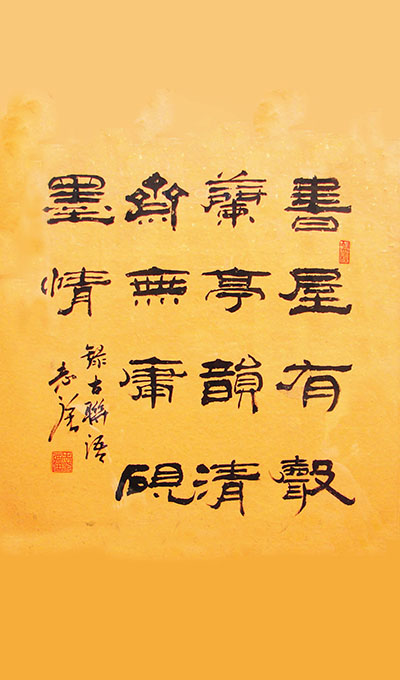 書屋有聲
蘭亭韻清
齋無庸硯
墨情
錄古聯語
志